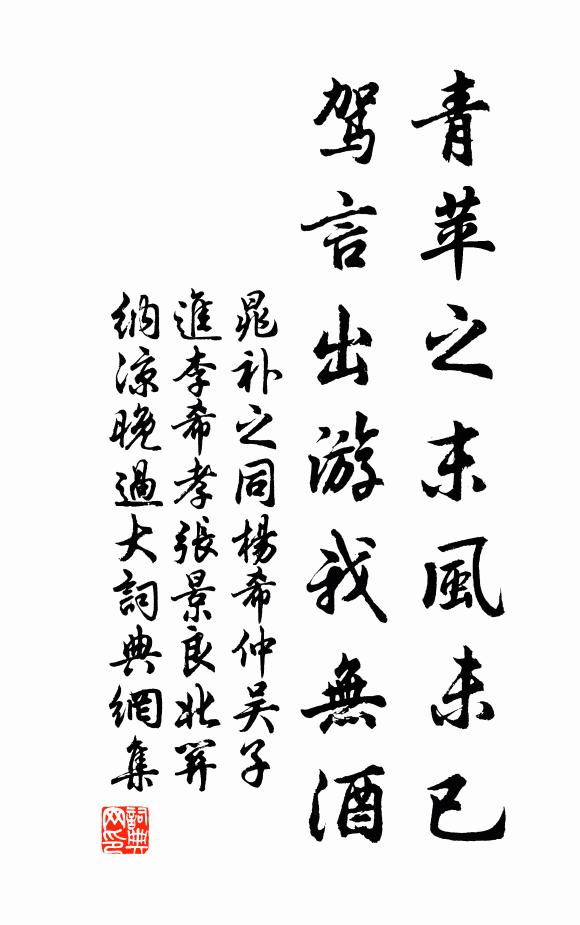 青苹之末風未已
驾言出游我無酒
晁补之同楊希仲吴子
進李希孝張景良北羿
納凉晚過大詞典網集
詞典网印